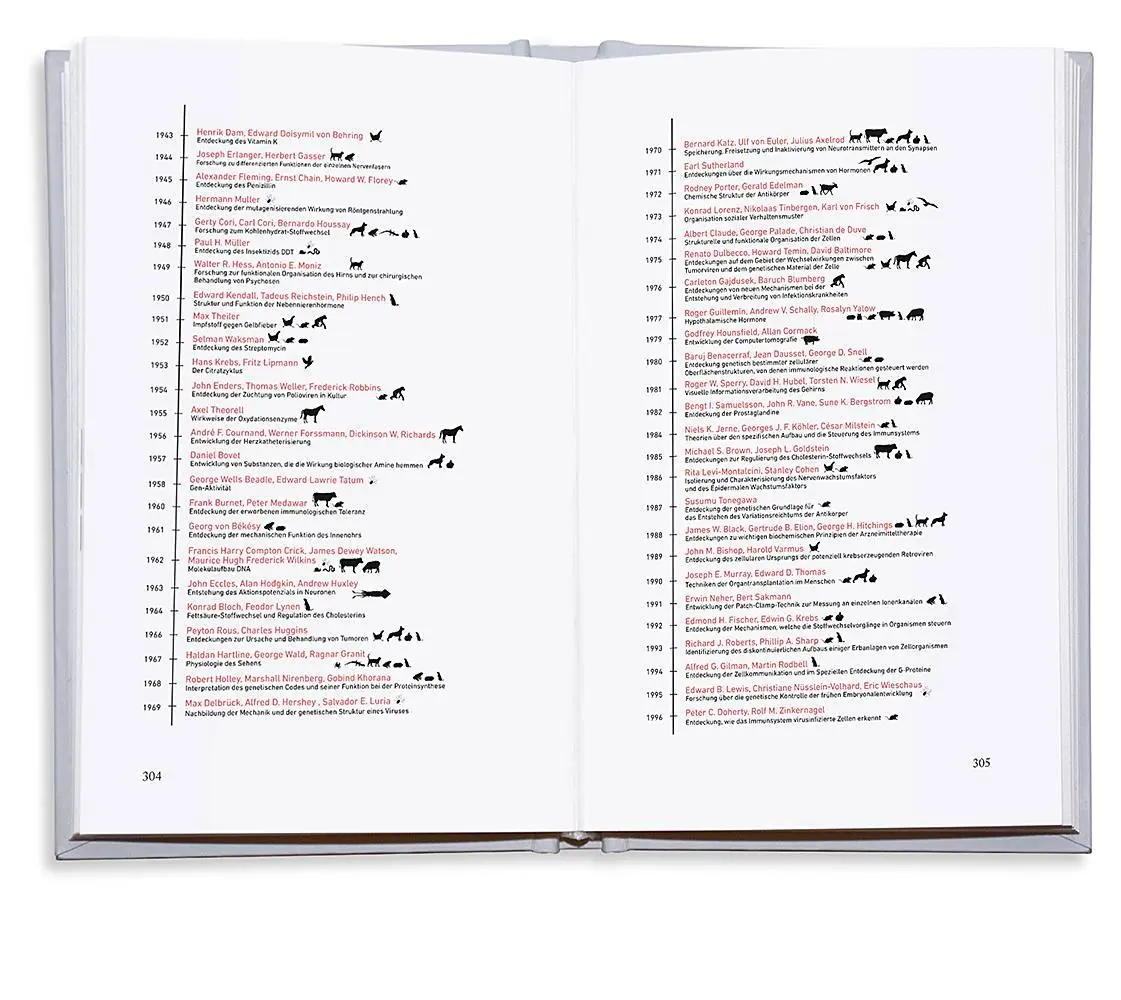 1943
Henrik Dam, Edward Doisymil von Behring
Entdeckung des Vitamin K
1944
Joseph Erlanger, Herbert Gasser
Forschung zu differenzierten Funktionen der einzelnen Nervenfasern
1945
Alexander Fleming, Ernst Chain, Howard W. Florey
Entdeckung des Penizillin
1946
Hermann Muller
Entdeckung der mutagenisierenden Wirkung von Röntgenstrahlung
1947
Gerty Cori, Carl Cori, Bernardo Houssay
Forschung zum Kohlenhydrat-Stoffwechsel
1948
Paul H. Müller
Entdeckung des Insektizids DDT
1949
Walter R. Hess, Antonio E. Moniz
Forschung zur funktionalen Organisation des Hirns und zur chirurgischen
Behandlung von Psychosen
1950
Edward Kendall, Tadeus Reichstein, Philip Hench
Struktur und Funktion der Nebennierenhormone
1951
Max Theiler
Impfstoff gegen Gelbfieber
1952
Selman Waksman
Entdeckung des Streptomycin
1953
Hans Krebs, Fritz Lipmann
Der Citratzyklus
1954
John Enders, Thomas Weller, Frederick Robbins
Entdeckung der Züchtung von Polioviren in Kultur
1955
Axel Theorell
Wirkweise der Oxydationsenzyme
1956
André F. Cournand, Werner Forssmann, Dickinson W. Richards
Entwicklung der Herzkatheterisierung
1957
Daniel Bovet
Entwicklung von Substanzen, die die Wirkung biologischer Amine hemmen
1958
George Wells Beadle, Edward Lawrie Tatum
Gen-Aktivität
1960
Frank Burnet, Peter Medawar
Entdeckung der erworbenen immunologischen Toleranz
1961
Georg von Békésy
Entdeckung der mechanischen Funktion des Innenohrs
1962
Francis Harry Compton Crick, James Dewey Watson,
Maurice Hugh Frederick Wilkins
Molekulaufbau DNA
1963
John Eccles, Alan Hodgkin, Andrew Huxley
Entstehung des Aktionspotenzials in Neuronen
1964
Konrad Bloch, Feodor Lynen
Fettsäure-Stoffwechsel und Regulation des Cholesterins
1966
Peyton Rous, Charles Huggins
Entdeckungen zur Ursache und Behandlung von Tumoren
1967
Haldan Hartline, George Wald, Ragnar Granit
Physiologie des Sehens
1968
Robert Holley, Marshall Nirenberg, Gobind Khorana
Interpretation des genetischen Codes und seiner Funktion bei der Proteinsynthese
1969
Max Delbrück, Alfred D. Hershey , Salvador E. Luria
Nachbildung der Mechanik und der genetischen Struktur eines Viruses
304
1970
Bernard Katz, Ulf von Euler, Julius Axelrod
Speicherung, Freisetzung und Inaktivierung von Neurotransmittern an den Synapsen
1971
Earl Sutherland
Entdeckungen über die Wirkungsmechanismen von Hormonen
1972
Rodney Porter, Gerald Edelman
Chemische Struktur der Antikörper
1973
Konrad Lorenz, Nikolaas Tinbergen, Karl von Frisch
Organisation sozialer Verhaltensmuster
1974
Albert Claude, George Palade, Christian de Duve
Strukturelle und funktionale Organisation der Zellen
1975
Renato Dulbecco, Howard Temin, David Baltimore
Entdeckungen auf dem Gebiet der Wechselwirkungen zwischen
Tumorviren und dem genetischen Material der Zelle
1976
Carleton Gajdusek, Baruch Blumberg
Entdeckungen von neuen Mechanismen bei der
Entstehung und Verbreitung von Infektionskrankheiten
1977
Roger Guillemin, Andrew V. Schally, Rosalyn Yalow
Hypothalamische Hormone
1979
Godfrey Hounsfield, Allan Cormack
Entwicklung der Computertomografie
1980
Baruj Benacerraf, Jean Dausset, George D. Snell
Entdeckung genetisch bestimmter zellulärer
Oberflächenstrukturen, von denen immunologische Reaktionen gesteuert werden
1981
Roger W. Sperry, David H. Hubel, Torsten N. Wiesel
Visuelle Informationsverarbeitung des Gehirns
1982
Bengt I. Samuelsson, John R. Vane, Sune K. Bergstrom
Entdeckung der Prostaglandine
1984
Niels K. Jerne, Georges J. F. Köhler, César Milstein
Theorien über den spezifischen Aufbau und die Steuerung des Immunsystems
1985
Michael S. Brown, Joseph L. Goldstein
Entdeckungen zur Regulierung des Cholesterin-Stoffwechsels
1986
Rita Levi-Montalcini, Stanley Cohen
Isolierung und Charakterisierung des Nervenwachstumsfaktors
und des Epidermalen Wachstumsfaktors
1987
Susumu Tonegawa
Entdeckung der genetischen Grundlage für
das Entstehen des Variationsreichtums der Antikörper
1988
James W. Black, Gertrude B. Elion, George H. Hitchings
Entdeckungen zu wichtigen biochemischen Prinzipien der Arzneimitteltherapie
1989
John M. Bishop, Harold Varmus
Entdeckung des zellularen Ursprungs der potenziell krebserzeugenden Retroviren
1990
Joseph E. Murray, Edward D. Thomas
Techniken der Organtransplantation im Menschen
1991
Erwin Neher, Bert Sakmann
Entwicklung der Patch-Clamp-Technik zur Messung an einzelnen Ionenkanälen
1992
Edmond H. Fischer, Edwin G. Krebs
Entdeckung der Mechanismen, welche die Stoffwechselvorgänge in Organismen steuern
1993
Richard J. Roberts, Phillip A. Sharp
Identifizierung des diskontinuierlichen Aufbaus einiger Erbanlagen von Zellorganismen
1994
Alfred G. Gilman, Martin Rodbell
Entdeckung der Zellkommunikation und im Speziellen Entdeckung der G-Proteine
1995
Edward B. Lewis, Christiane Nüsslein-Volhard, Eric Wieschaus
Forschung über die genetische Kontrolle der frühen Embryonalentwicklung
1996
Peter C. Doherty, Rolf M. Zinkernagel
Entdeckung, wie das Immunsystem virusinfizierte Zellen erkennt
305